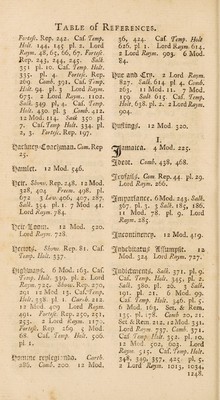 TABLE OF REFERENCES.
Fortesc. Rep. 242. Cas. Temp.
Holt. 144, 145 pl. 2. Lord
Raym. 28, 65, 66, 67. Fortesc.
Rep. 243, 244, 245. Salk.
351 pl. 10. Cas. Temp. Holt.
335. pl. 4. Fortesc. Rep.
269. Comb. 391. Cas. Temp.
Holt. 94. pl. 3 Lord Raym.
673. 2 Lord Raym. 1102.
Salk. 349 pl. 4. Cas. Temp.
Holt. 430. pl. 5 Comb. 412.
12 Mod. 114. Salk 350 pl.
7. Cas. Temp. Holt. 334. pl.
3. Fortesc. Rep. 197.
Hackney-Coachman. Com. Rep
25.
Hamlet. 12 Mod. 546.
Heir. Show. Rep. 248. 12 Mod.
328, 403 Freem. 498. pl.
672 3 Lev. 406, 407, 287.
Salk. 354 pl. 1. 7 Mod 41.
Lord Raym. 784.
Heir Loom. 12 Mod. 520.
Lord Raym. 728.
Heriots. Show. Rep. 81. Cas.
Temp. Holt. 337.
Highways. 6 Mod. 163. Cas.
Temp. Holt. 339. pl. 2. Lord
Raym. 725. Show. Rep. 270,
291 12 Mod 13. Cas. Temp.
Holt. 338 pl 1. Carth. 212.
11 Mod 269 Lord Raym.
491. Fortesc. Rep. 250, 251,
253. 2 Lord Raym. 1170.
Fortesc. Rep 269 5 Mod.
68. Cas. Temp. Holt. 336.
pl. 1.
Homine replegiando. Carth.
286. Comb. 200 12 Mod.
36, 424. Cas. Temp. Holt.
626. pl 1. Lord Raym. 614.
2 Lord Raym. 903. 6 Mod
84.
Hue and Cry. 2 Lord Raym.
827. Salk. 614 pl. 4. Comb.
263. 11 Mod. 11. 7 Mod.
159 Salk 615. Cas. Temp.
Holt. 638. pl. 2. 2 Lord Raym.
904.
Hustings. 12 Mod 320.
I.
Jamaica. 4 Mod. 225.
Ideot. Comb. 438, 468.
Jeofails. Com Rep. 44. pl. 29.
Lord Raym. 266.
Imparlance. 6 Mod. 243. Salk.
367. pl. 3. 5 Salk. 185, 186.
11 Mod. 78. pl. 9. Lord
Raym. 285.
Incontinency. 12 Mod. 419.
Indebitatus Assumpsit. 12
Mod. 324. Lord Raym. 727.
Indictments. Salk. 371. pl. 9.
Cas. Temp. Holt. 345. pl. 2.
Salk. 380. pl. 20. 3 Salk.
191. pl. 21. 6 Mod. 99.
Cas. Temp. Holt. 346. pl. 5.
6 Mod. 105. Set. & Rem.
135. pl. 178. Comb. 20, 21.
Set & Rem. 212. 12 Mod. 331.
Lord Raym. 737. Comb. 371.
Cas Temp Holt. 352. pl. 10.
12 Mod 502, 603. Lord
Raym. 515. Cas. Temp. Holt.
348, 349, 357, 425. pl. 5.
2 Lord Raym. 1013, 1034,
1248.